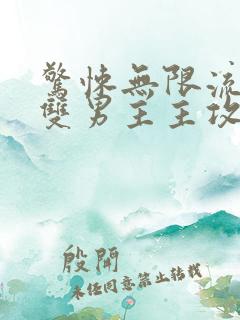 驚悚無限流
雙男主主攻
殷開
未經同意禁止轉載